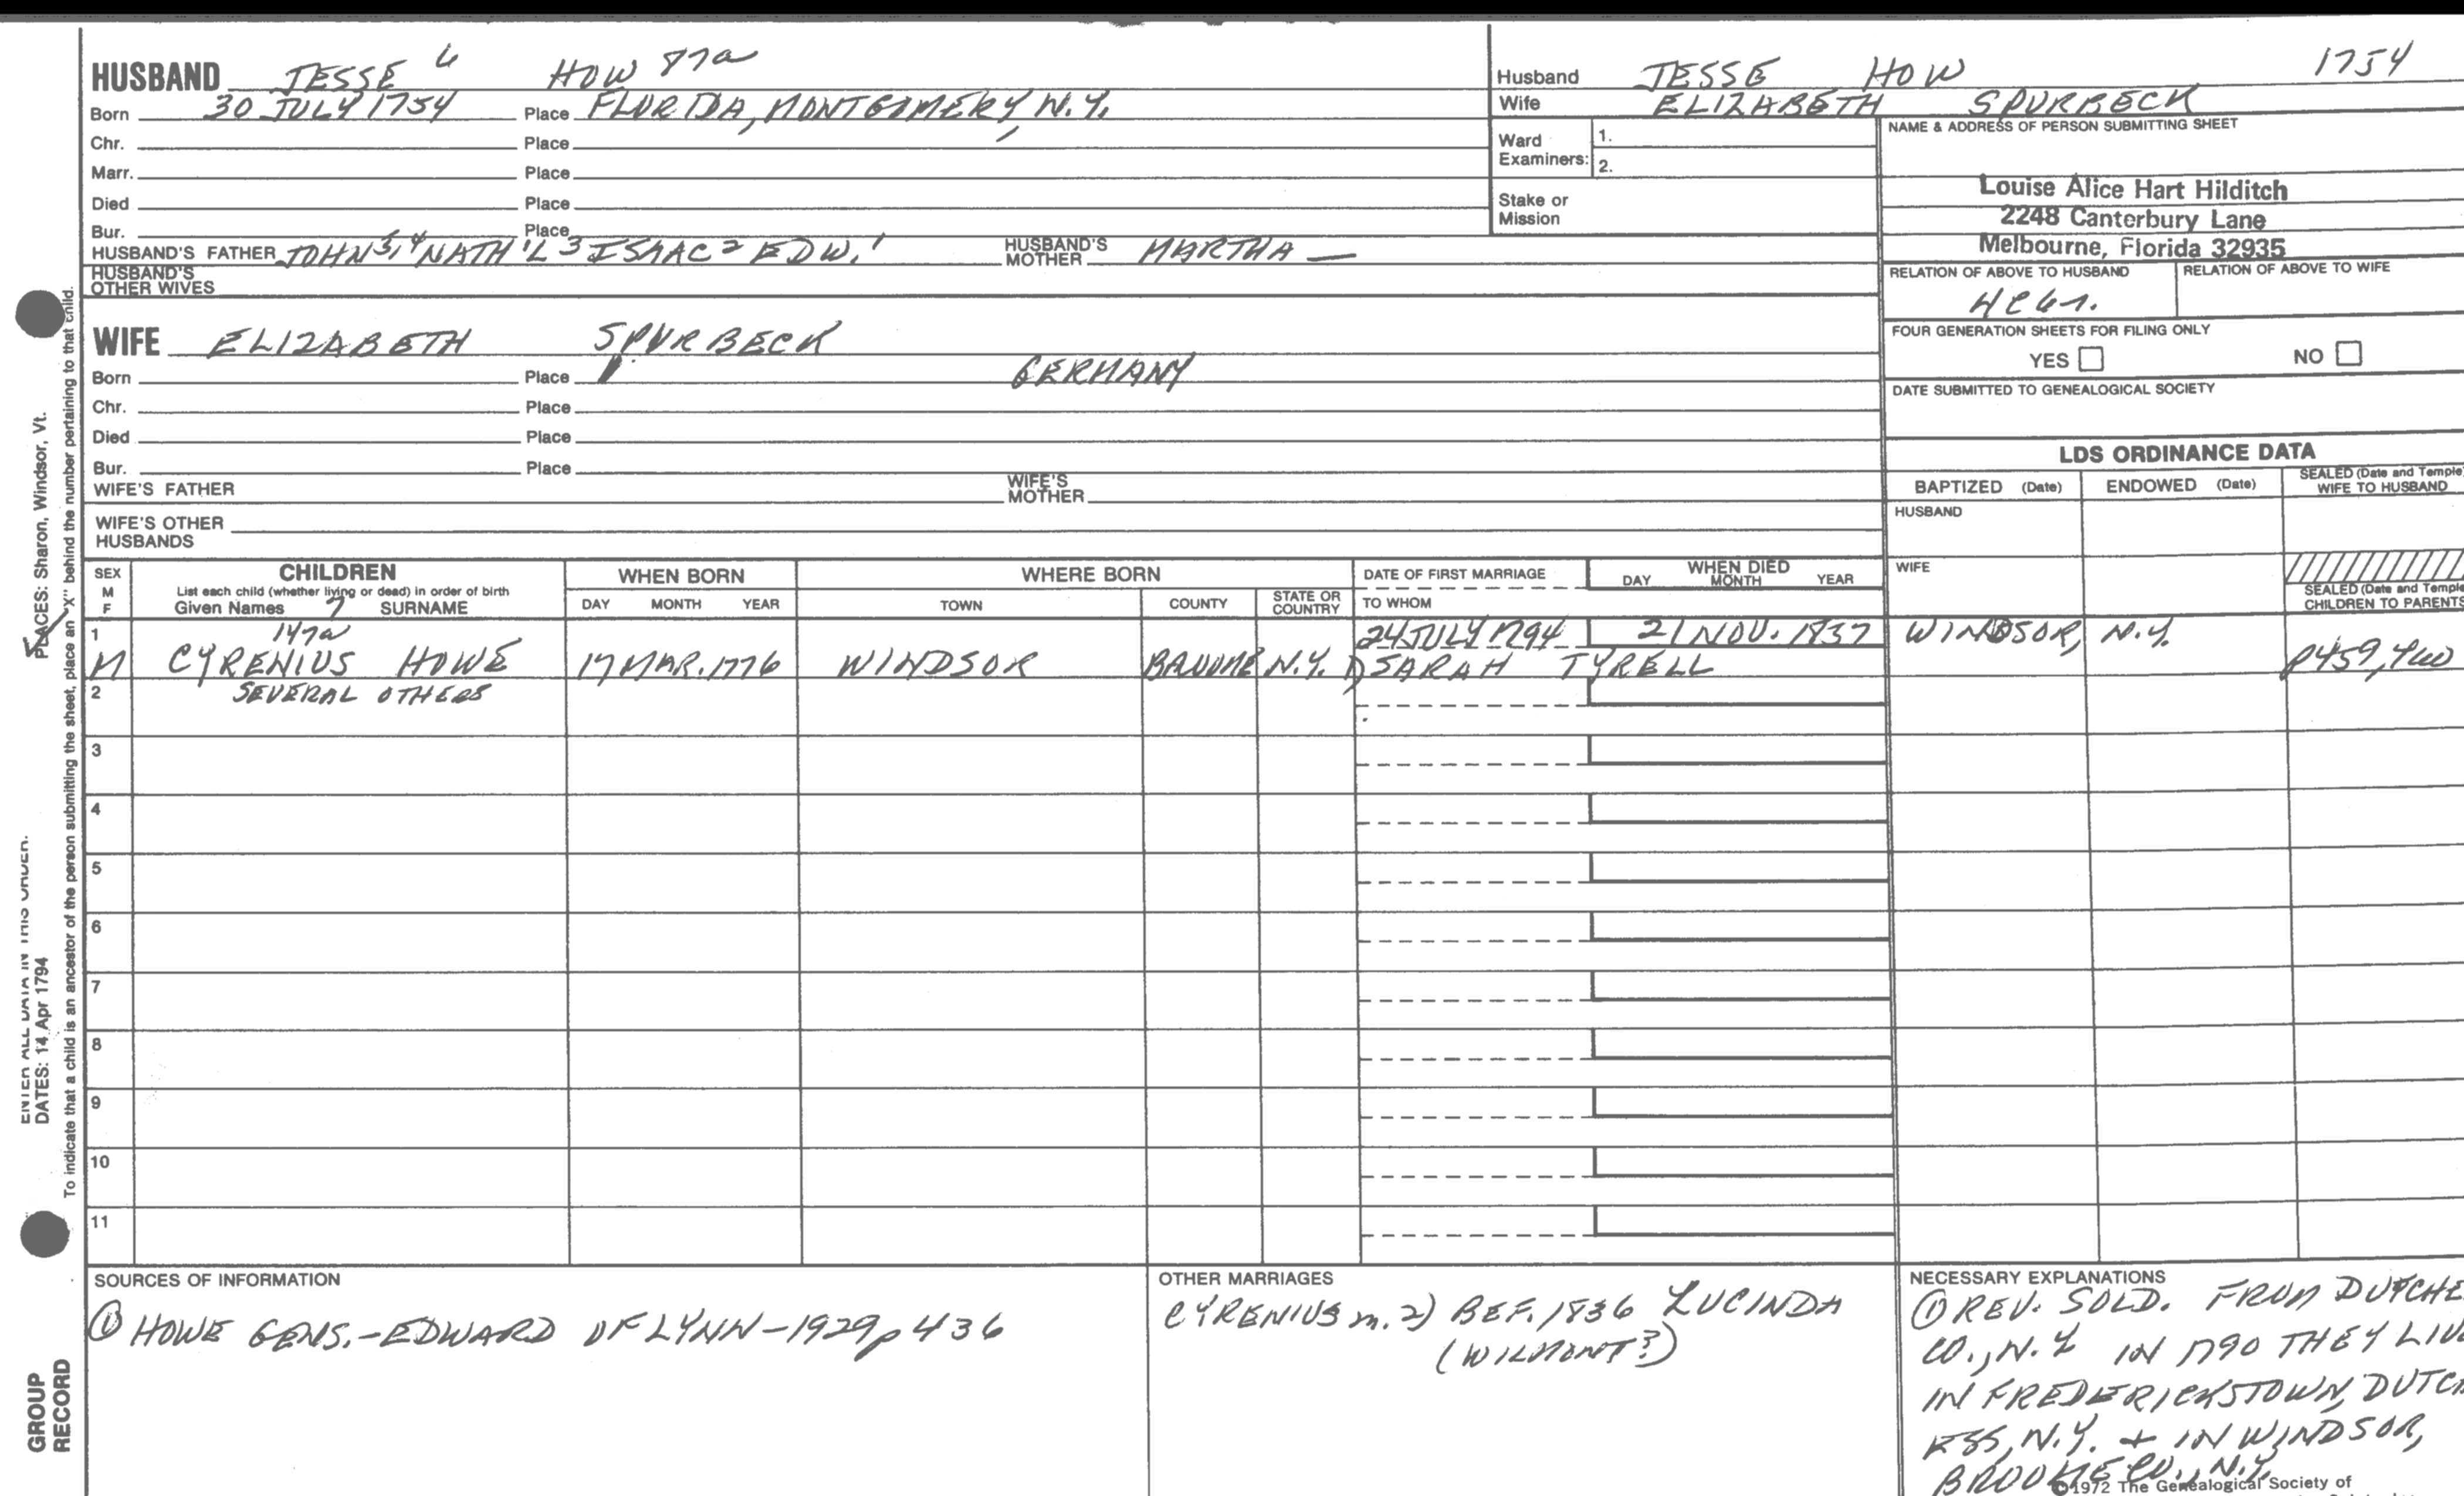 HUSBAND JESSE 6 HOW 87a
Born 30 JULY 1754 Place FLORIDA, MONTGOMERY, N.Y.
Chr. Place
Marr. Place
Died Place
Bur. Place
HUSBAND'S FATHER JOHN 5,4 NATH'L 3 ISAAC 2 EDW. 1 HUSBAND'S MOTHER MARTHA —
HUSBAND'S OTHER WIVES
WIFE ELIZABETH SPURBECK
Born Place GERMANY
Chr. Place
Died Place
Bur. Place
WIFE'S FATHER WIFE'S MOTHER
WIFE'S OTHER HUSBANDS
Husband JESSE HOW 1754
Wife ELIZABETH SPURBECK
Ward Examiners: 1.
2.
Stake or Mission
NAME & ADDRESS OF PERSON SUBMITTING SHEET
Louise Alice Hart Hilditch
2248 Canterbury Lane
Melbourne, Florida 32935
RELATION OF ABOVE TO HUSBAND RELATION OF ABOVE TO WIFE
FOUR GENERATION SHEETS FOR FILING ONLY
YES NO
DATE SUBMITTED TO GENEALOGICAL SOCIETY
LDS ORDINANCE DATA
BAPTIZED (Date) ENDOWED (Date) SEALED (Date and Temple) WIFE TO HUSBAND
HUSBAND
WIFE
SEALED (Date and Temple) CHILDREN TO PARENTS
SEX M F
CHILDREN
List each child (whether living or dead) in order of birth
Given Names 7 SURNAME
WHEN BORN
DAY MONTH YEAR
WHERE BORN
TOWN COUNTY STATE OR COUNTRY
DATE OF FIRST MARRIAGE
TO WHOM
WHEN DIED
DAY MONTH YEAR
1 147a 24 JULY 1794 21 NOV. 1837 WINDSOR, N.Y.
M CYRENIUS HOWE 17 MAR. 1776 WINDSOR BROOME N.Y. 1) SARAH TYRELL
2 SEVERAL OTHERS
3
4
5
6
7
8
9
10
11
SOURCES OF INFORMATION
① HOWE GENS.-EDWARD OF LYNN-1929 p 436
OTHER MARRIAGES
CYRENIUS m. 2) BEF. 1836 LUCINDA
(WILMONT?)
NECESSARY EXPLANATIONS
① REV. SOLD. FROM DUTCHE
CO., N.Y IN 1790 THEY LIV
IN FREDERICKSTOWN, DUTCH
ESS, N.Y. + IN WINDSOR,
BROOME CO., N.Y.
©1972 The Genealogical Society of
PLACES: Sharon, Windsor, Vt.
To indicate that a child is an ancestor of the person submitting the sheet, place an "X" behind the number pertaining to that child.
ENTER ALL DATA IN THIS ORDER.
DATES: 14 Apr 1794
GROUP
RECORD